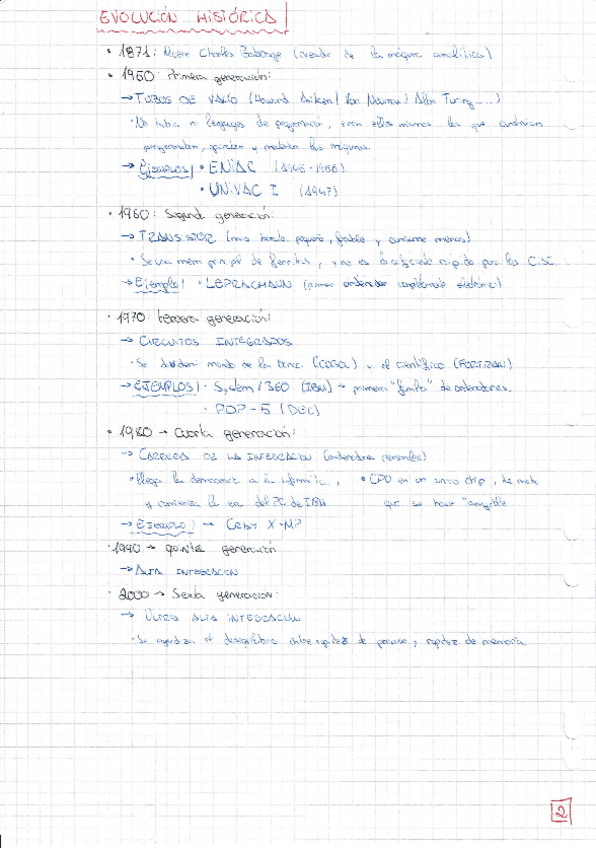 EVOLUCIÓN HISTÓRICA
• 1871: Muere Charles Babbage (creador de la máquina analítica)
• 1950: Primera generación:
→ TUBOS DE VACÍO (Howard Aiken / Von Neuman / Allan Turing ....)
· No había ni lenguajes de programación, eran ellos mismos los que
programaban, y las máquinas.
→ Ejemplos / • ENIAC (1946-1956)
• UNIVAC I (1947)
• 1960: Segund generación:
→ TRANSISTOR (mas barato, pequeño, fiable y consume menos)
· Se usa mem princip. de ferritas, y no es lo suficiente rápido para las
→ Ejemplo / • LEPRACHAUN (primer ordenador completamente electrónico)
· 1970: tercera generación:
→ CIRCUITOS INTEGRADOS
· Se dividen: mundo de la (COBOL) y el científico (FORTRAN)
→ EJEMPLOS / · System / 360 (IBM) → primera "familia" de ordenadores.
· PDP-5 (DEC)
• 1980 → Cuarta generación:
→ CARRERA DE LA INTEGRACION (ordenadores personales)
• llega la democracia a la informática, • CPU en un único chip, de modo
y comienza la era del PC de IBM que se hace
→ EJEMPLO / → Cray X-MP
· 1990 → quinta generación
→ ALTA INTEGRACION
· 2000 → Sexta generacion:
→ ULTRA ALTA INTEGRACION
· Se agudiza el desequilibrio entre rapidez de proceso y rapidez de memoria.
2